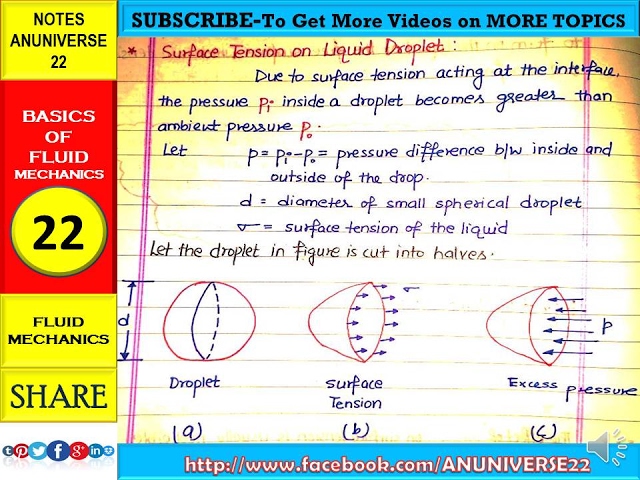 NOTES
ANUNIVERSE
22
SUBSCRIBE-To Get More Videos on MORE TOPICS
BASICS
OF
FLUID
MECHANICS
22
FLUID
MECHANICS
SHARE
* Surface Tension on Liquid Droplet :
Due to surface tension acting at the interface,
the pressure pi inside a droplet becomes greater than
ambient pressure po.
Let p = pi - po = pressure difference b/w inside and
outside of the drop.
d = diameter of small spherical droplet
σ = surface tension of the liquid
Let the droplet in figure is cut into halves.
d
σ
p
Droplet
Surface
Tension
Excess pressure
(a)
(b)
(c)
http://www.facebook.com/ANUNIVERSE22